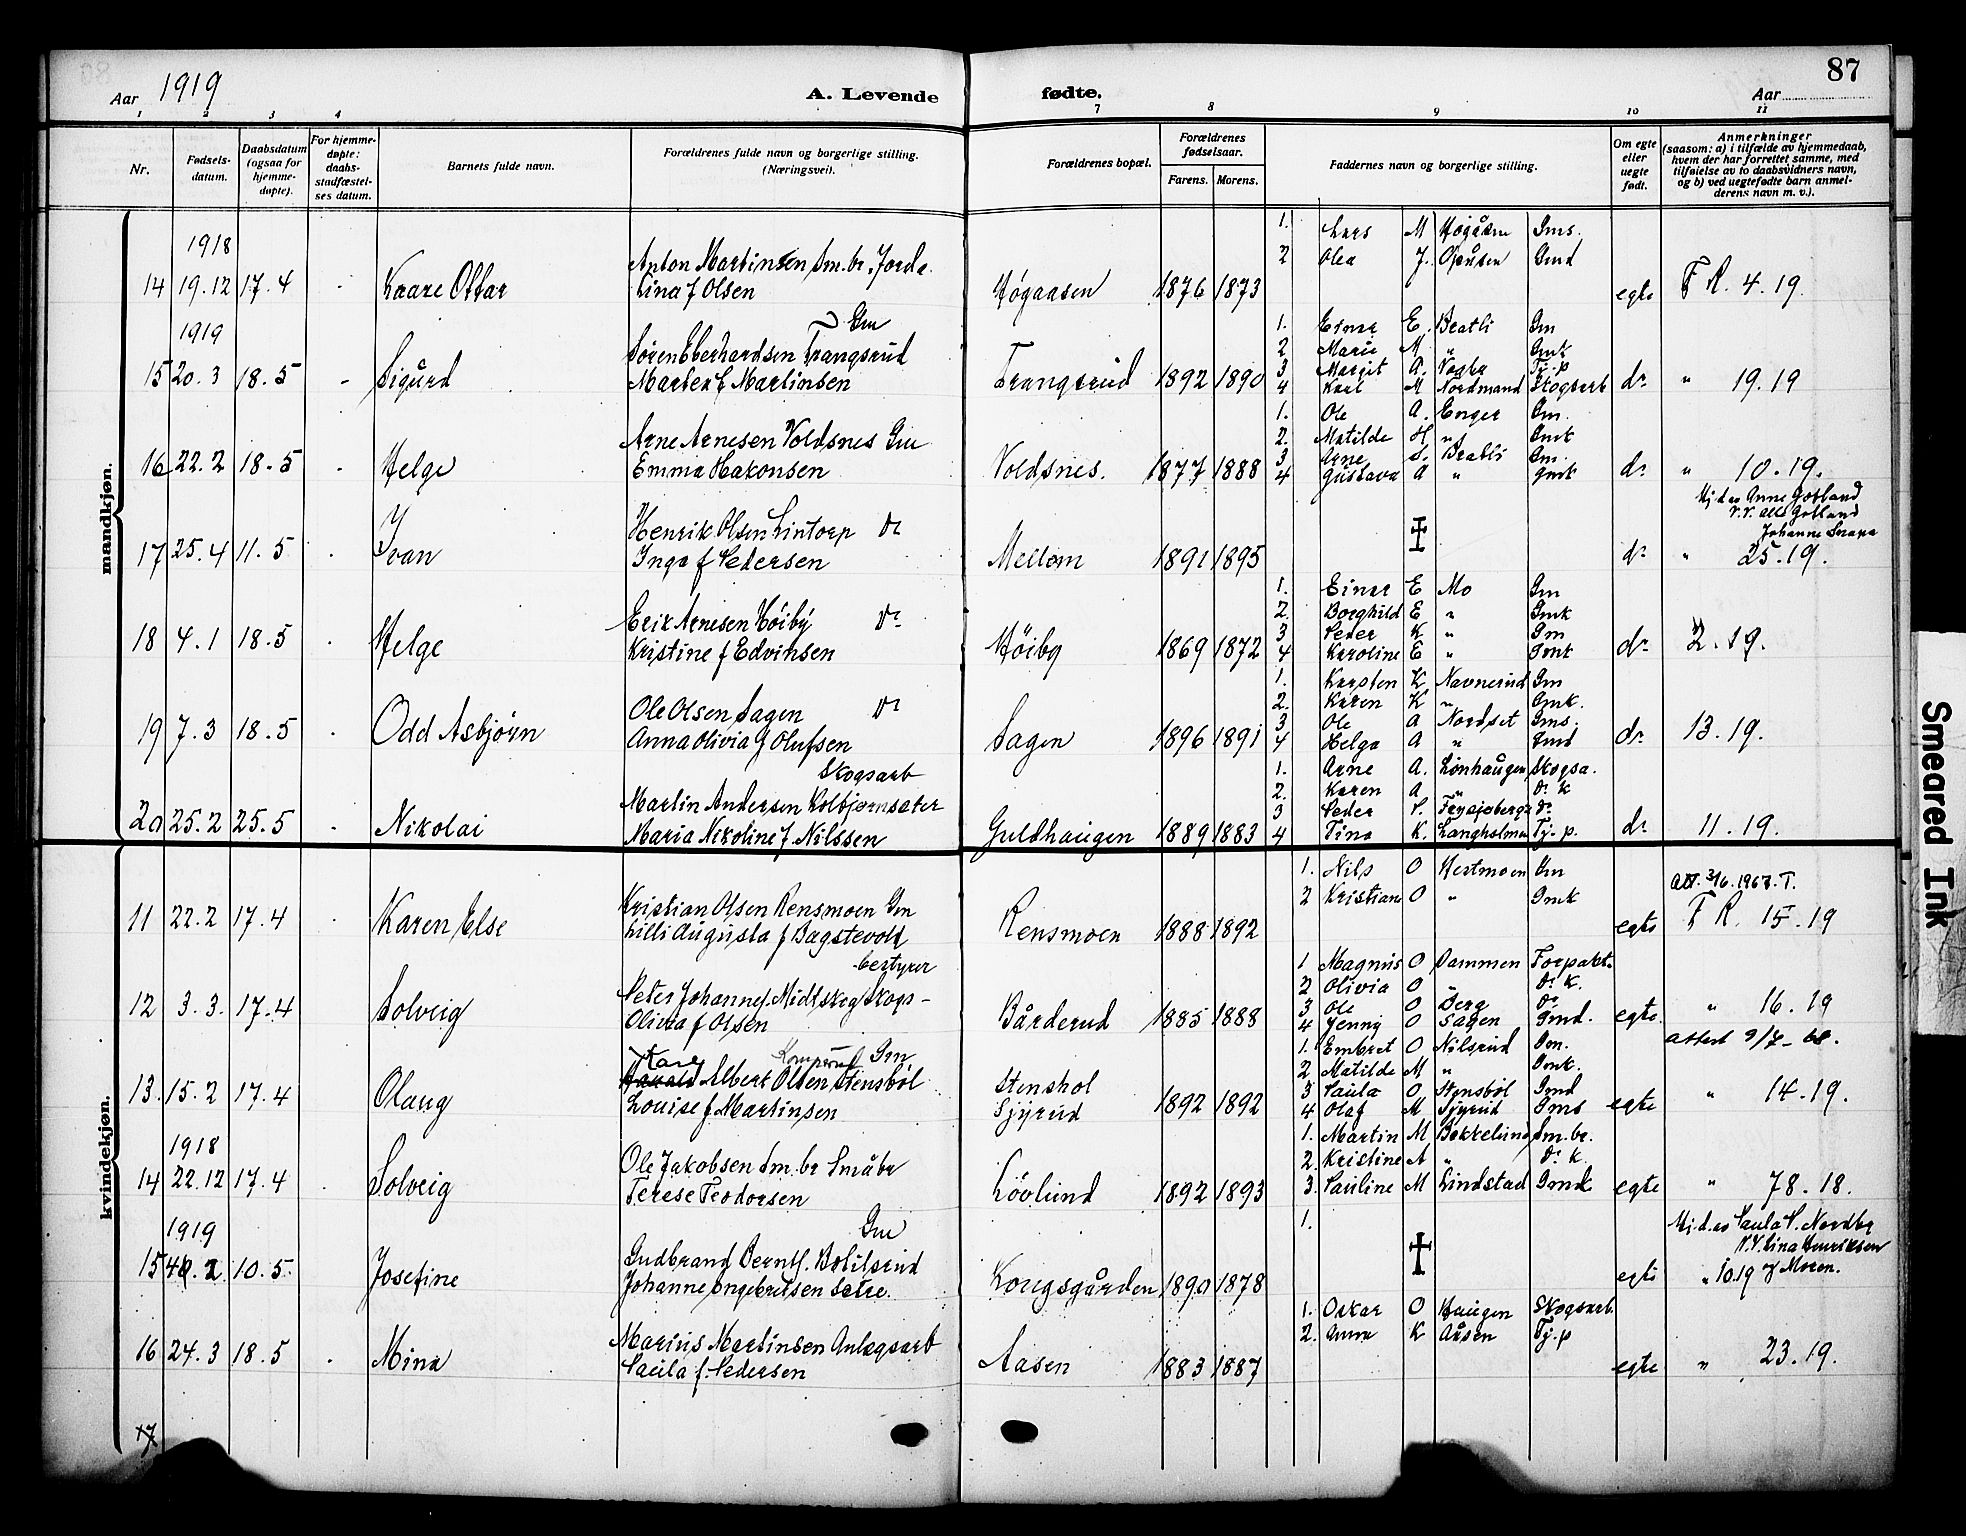 87
Aar 1919
A. Levende
fødte.
Aar
1 2 3 4 7 8 9 10 11
Nr.
Fødsels-
datum.
Daabsdatum
(ogsaa for
hjemme-
døpte).
For hjemme-
døpte:
daabs-
stadfæstel-
ses datum.
Barnets fulde navn.
Forældrenes fulde navn og borgerlige stilling.
(Næringsvei).
Forældrenes bopæl.
Forældrenes
fødselsaar.
Farens. Morens.
Faddernes navn og borgerlige stilling.
Om egte
eller
uegte
født.
Anmerkninger
(saasom: a) i tilfælde av hjemmedaab,
hvem der har forrettet samme, med
tilføielse av to daabsvidners navn,
og b) ved uegtefødte barn anmel-
derens navn m. v.).
mandkjøn.
1918
14 19.12 17.4 - Kaare Ottar
Anton Martinsen Sm.br. Jorde
Lina f Olsen
Høgaasen 1876 1873
1. Lars M Høgåsen Gms.
2 Olea J. Gmd
egte F R. 4.19.
1919
15 20.3 18.5 - Sigurd
Gm
Søren Eberhardsen Trangsrud
Martea E Martinsen
Trangsrud 1892 1890
1. Einar E. Bratli Gm
2 Marie M. " Gmk
3 Margit A. Tj.p
4 Karl M Nordmand Skogsarb
do " 19.19
16 22.2 18.5 - Helge
Arne Arnesen Voldsnes Gm
Emma Hakonsen
Voldsnes. 1877 1888
1. Ole A. Enger Gm.
2. Matilde H " Gmk
3 Arne S. Bratli Gm.
4 Gustava A " Gmk
do " 10.19.
17 25.4 11.5 . Ivan
Henrik Olsen Lintorp do
Inga f Pedersen
Mellem 1891 1895
Hj.d. av Anne Gotland
V.V. Gotland
Johanne
do " 25.19.
18 4.1 18.5 . Helge
Erik Arnesen Høiby do
Kristine f Edvinsen
Høiby 1869 1872
1. Einar E Mo Gm
2. Borghild E " Gmk
3 Peder K " Gm
4 Karoline E " Gmk
do 2.19.
19 7.3 18.5 . Odd Asbjørn
Ole Olsen Sagen do
Anna Olivia f Olufsen
Sagen 1896 1891
1. Karsten K Navnerud Gm
2. Karen K " Gmk.
3 Ole A Nordset Gms.
4 Helga A " Gmd
do 13.19.
20 25.2 25.5 . Nikolai
Skogsarb
Martin Andersen Kolbjørnsæter
Maria Nikoline f. Nilssen
Guldhaugen 1889 1883
1. Arne A. Lönhaugen Skogsa.
2. Karen A. " do k
3 Peder P. do
4 Tina K. Langholmen Tj.p.
do 11.19.
kvindekjøn.
11 22.2 17.4 . Karen Else
Kristian Olsen Rensmoen Gm
Lilli Augusta f Bagstevold
Rensmoen 1888 1892
1. Nils O Hestmoen Gm
2 Kristiane O " Gmk
egte
Att. 3/6.1967. T.
F R. 15.19
12 3.3. 17.4 Solveig
bestyrer
Peter Johannes. Midtskog Skogs-
Olivia f Olsen
Bårderud 1885 1888
1 Magnus O Dammen Forpakt.
2 Olivia O " do K.
3 Ole O Berg do
4 Jenny O Sagen Gmd.
egte. " 16.19
attest 9/7-68.
13. 15.2 17.4 Olaug
Kåre Gm
Harald Albert Olsen Stensböl
Louise f Martinsen
Stensbol
Sjyrud
1892 1892
1. Embret O Nilsrud Gm.
2. Matilde M " Gmk.
3 Paula O Stensböl Gmd
4 Olaf M Sjyrud Gms
egte " 14.19.
1918
14 22.12 17.4 . Solveig
Ole Jakobsen Sm.br Småbr
Terese Teodorsen
Lövlund 1892 1893
1. Martin M Bekkelund Sm.br.
2. Kristine A " do k.
3. Pauline M Lindstad Gmd
egte " 78.18.
1919
15 10.5. Josefine
Gm
Gudbrand Berntf. Bolilsrud
Johanne Ingebretsen Setre.
Kongsgården 1890 1878
1.
egte
Hj.d. av Paula P. Nordby
V.V. Lina Henriksen
" 10.19 Moren.
16 24.3 18.5 . Mina
Marius Martinsen Anlægsarb
Paula f. Pedersen
Aasen 1883 1887
1. Oskar O Haugen Skogsarb.
2. Anna K Aasen Tj.p
egte " 23.19.
17
Smeared Ink